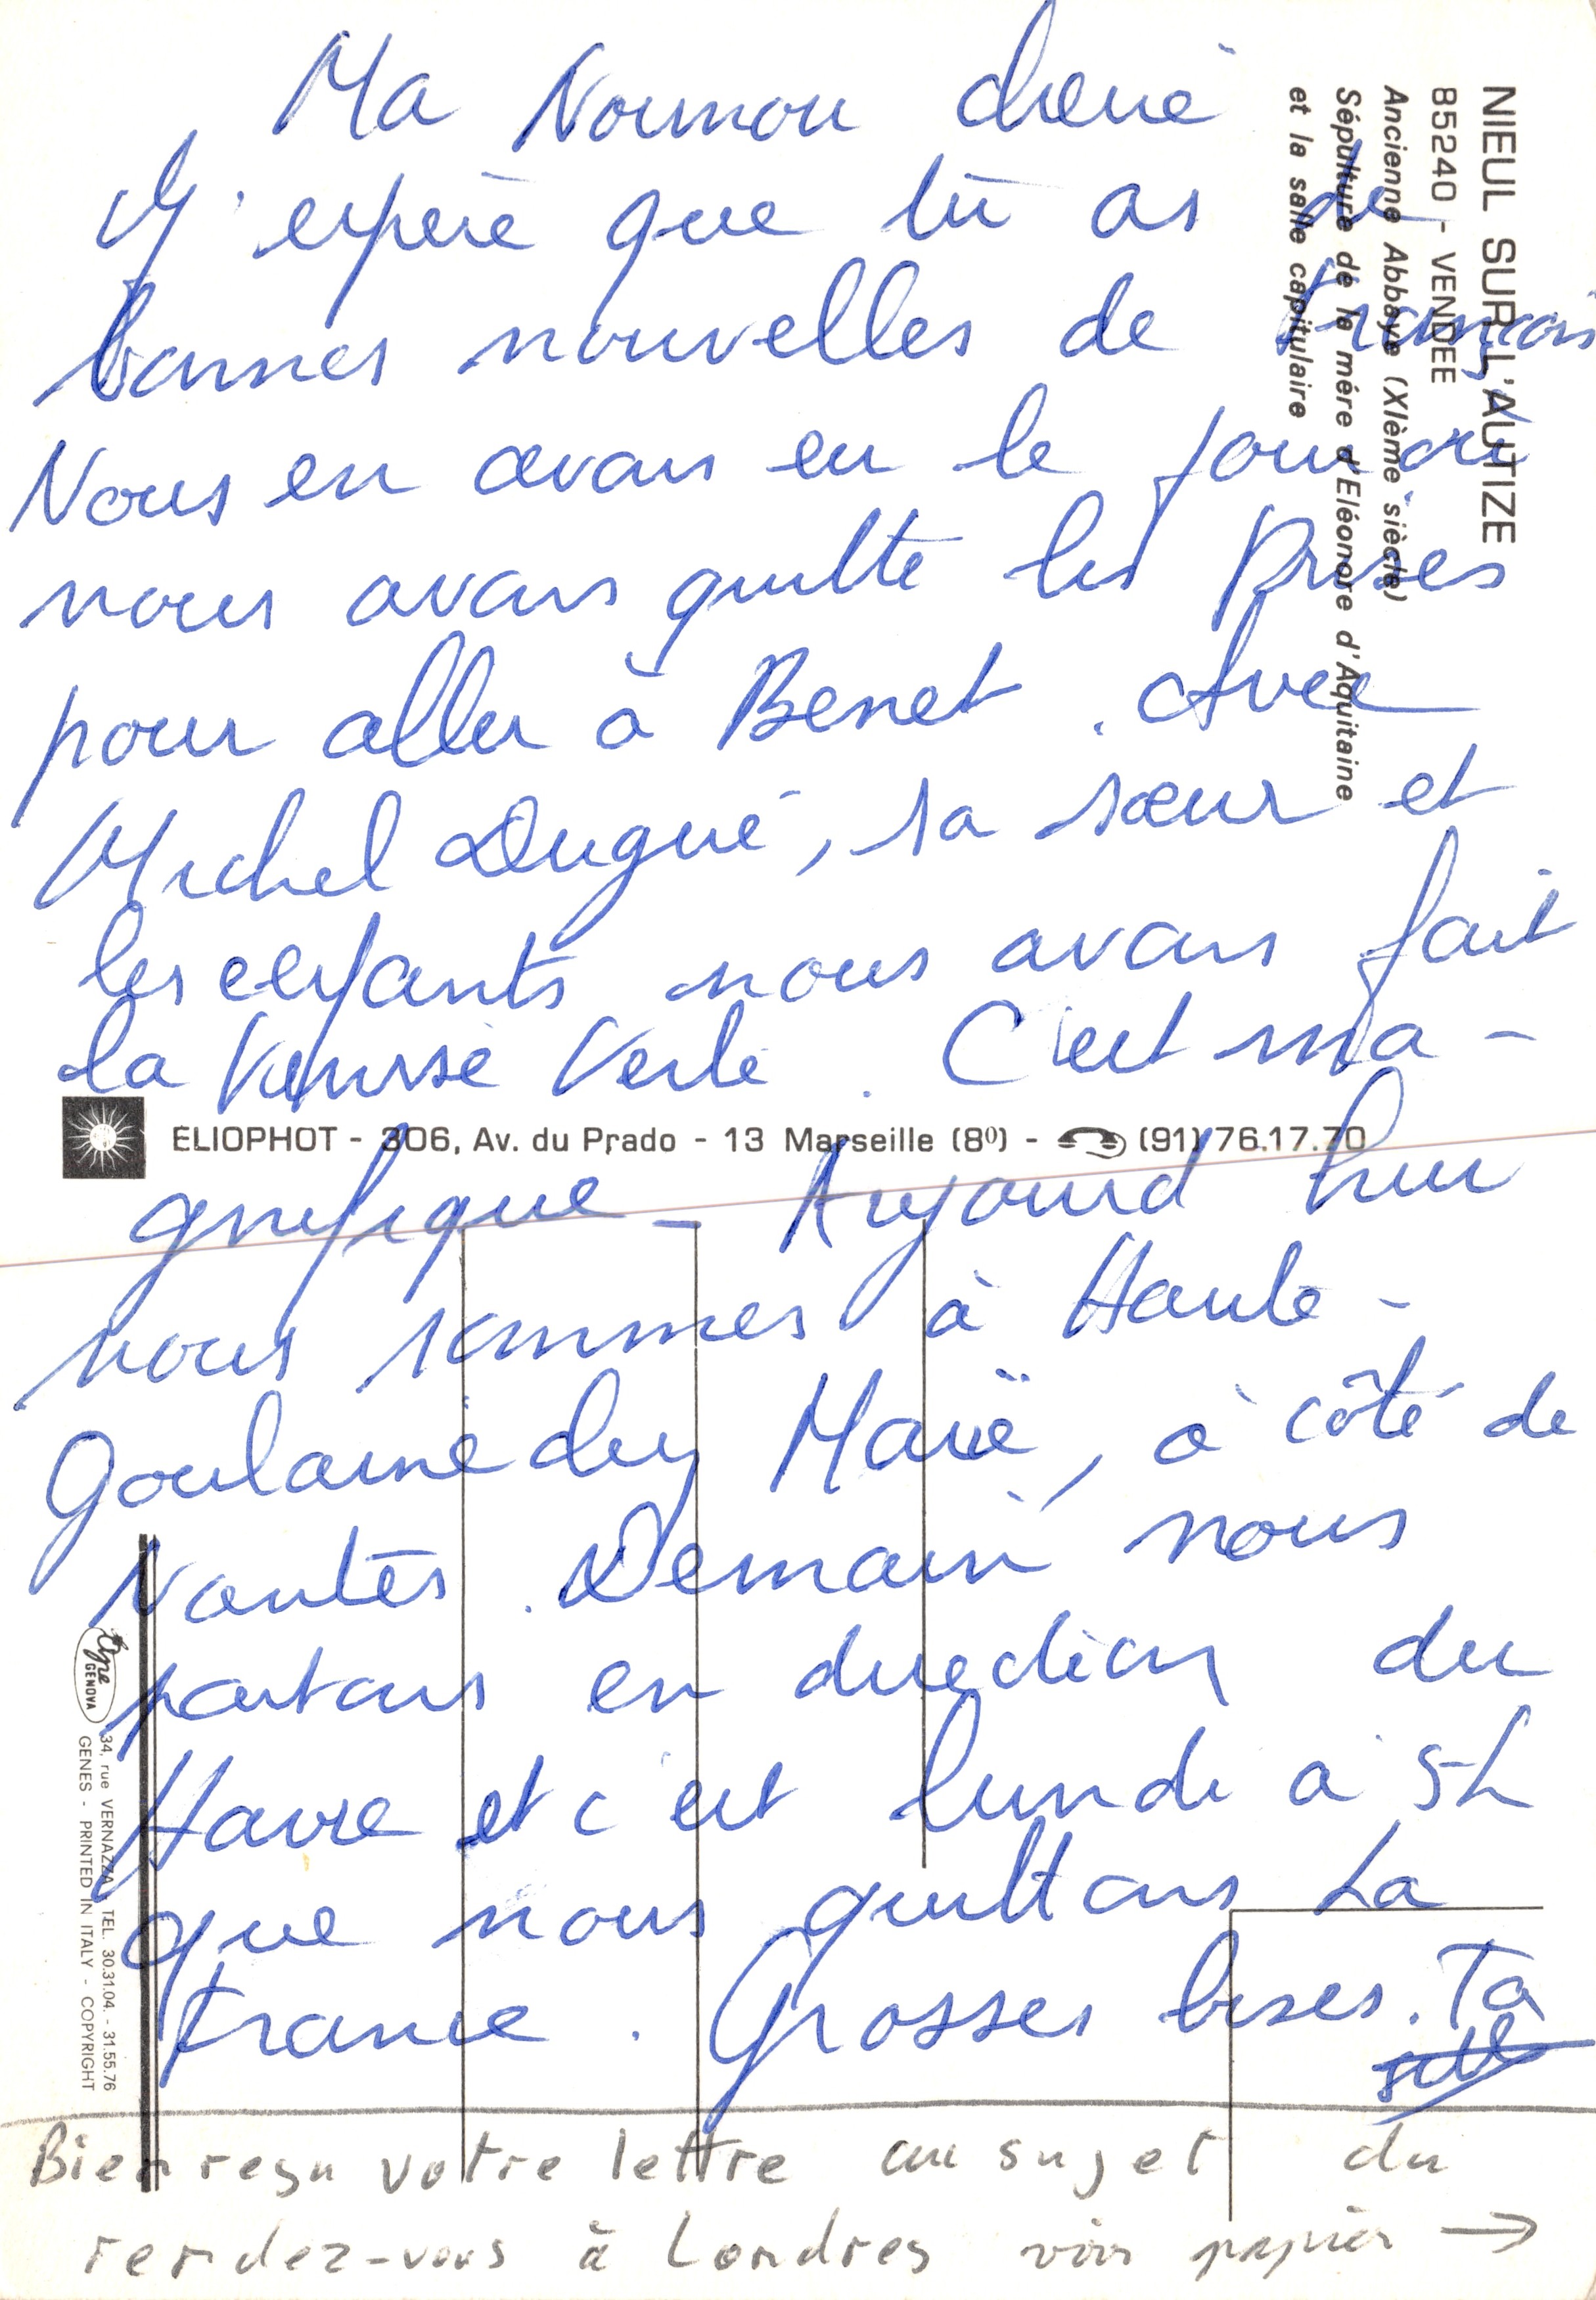 NIEUL SUR L'AUTIZE
85240 - VENDEE
Ancienne Abbaye (XIème siècle)
Sépulture de la mére d'Eléonore d'Aquitaine
et la salle capitulaire
Ma Nounou chérie
J'espère que tu as de
bonnes nouvelles de François
Nous en avons eu le jour où
nous avons quitté les Prises
pour aller à Benet. Avec
Michel Dugué, sa sœur et
les enfants nous avons fait
la Venise Verte. C'est ma-
ELIOPHOT - 306, Av. du Prado - 13 Marseille (8º) - (91) 76.17.70
gnifique - Aujourd'hui
nous sommes à Haute-
Goulaine chez Maïë, à côté de
Nantes. Demain nous
partons en direction du
Havre et c'est lundi à 5h
que nous quittons La
France. Grosses bises. Ta
Bien reçu votre lettre au sujet du
rendez-vous à Londres voir papier →
Agne GENOVA
34, rue VERNAZZA TEL. 30.31.04 - 31.55.76
GENES - PRINTED IN ITALY - COPYRIGHT